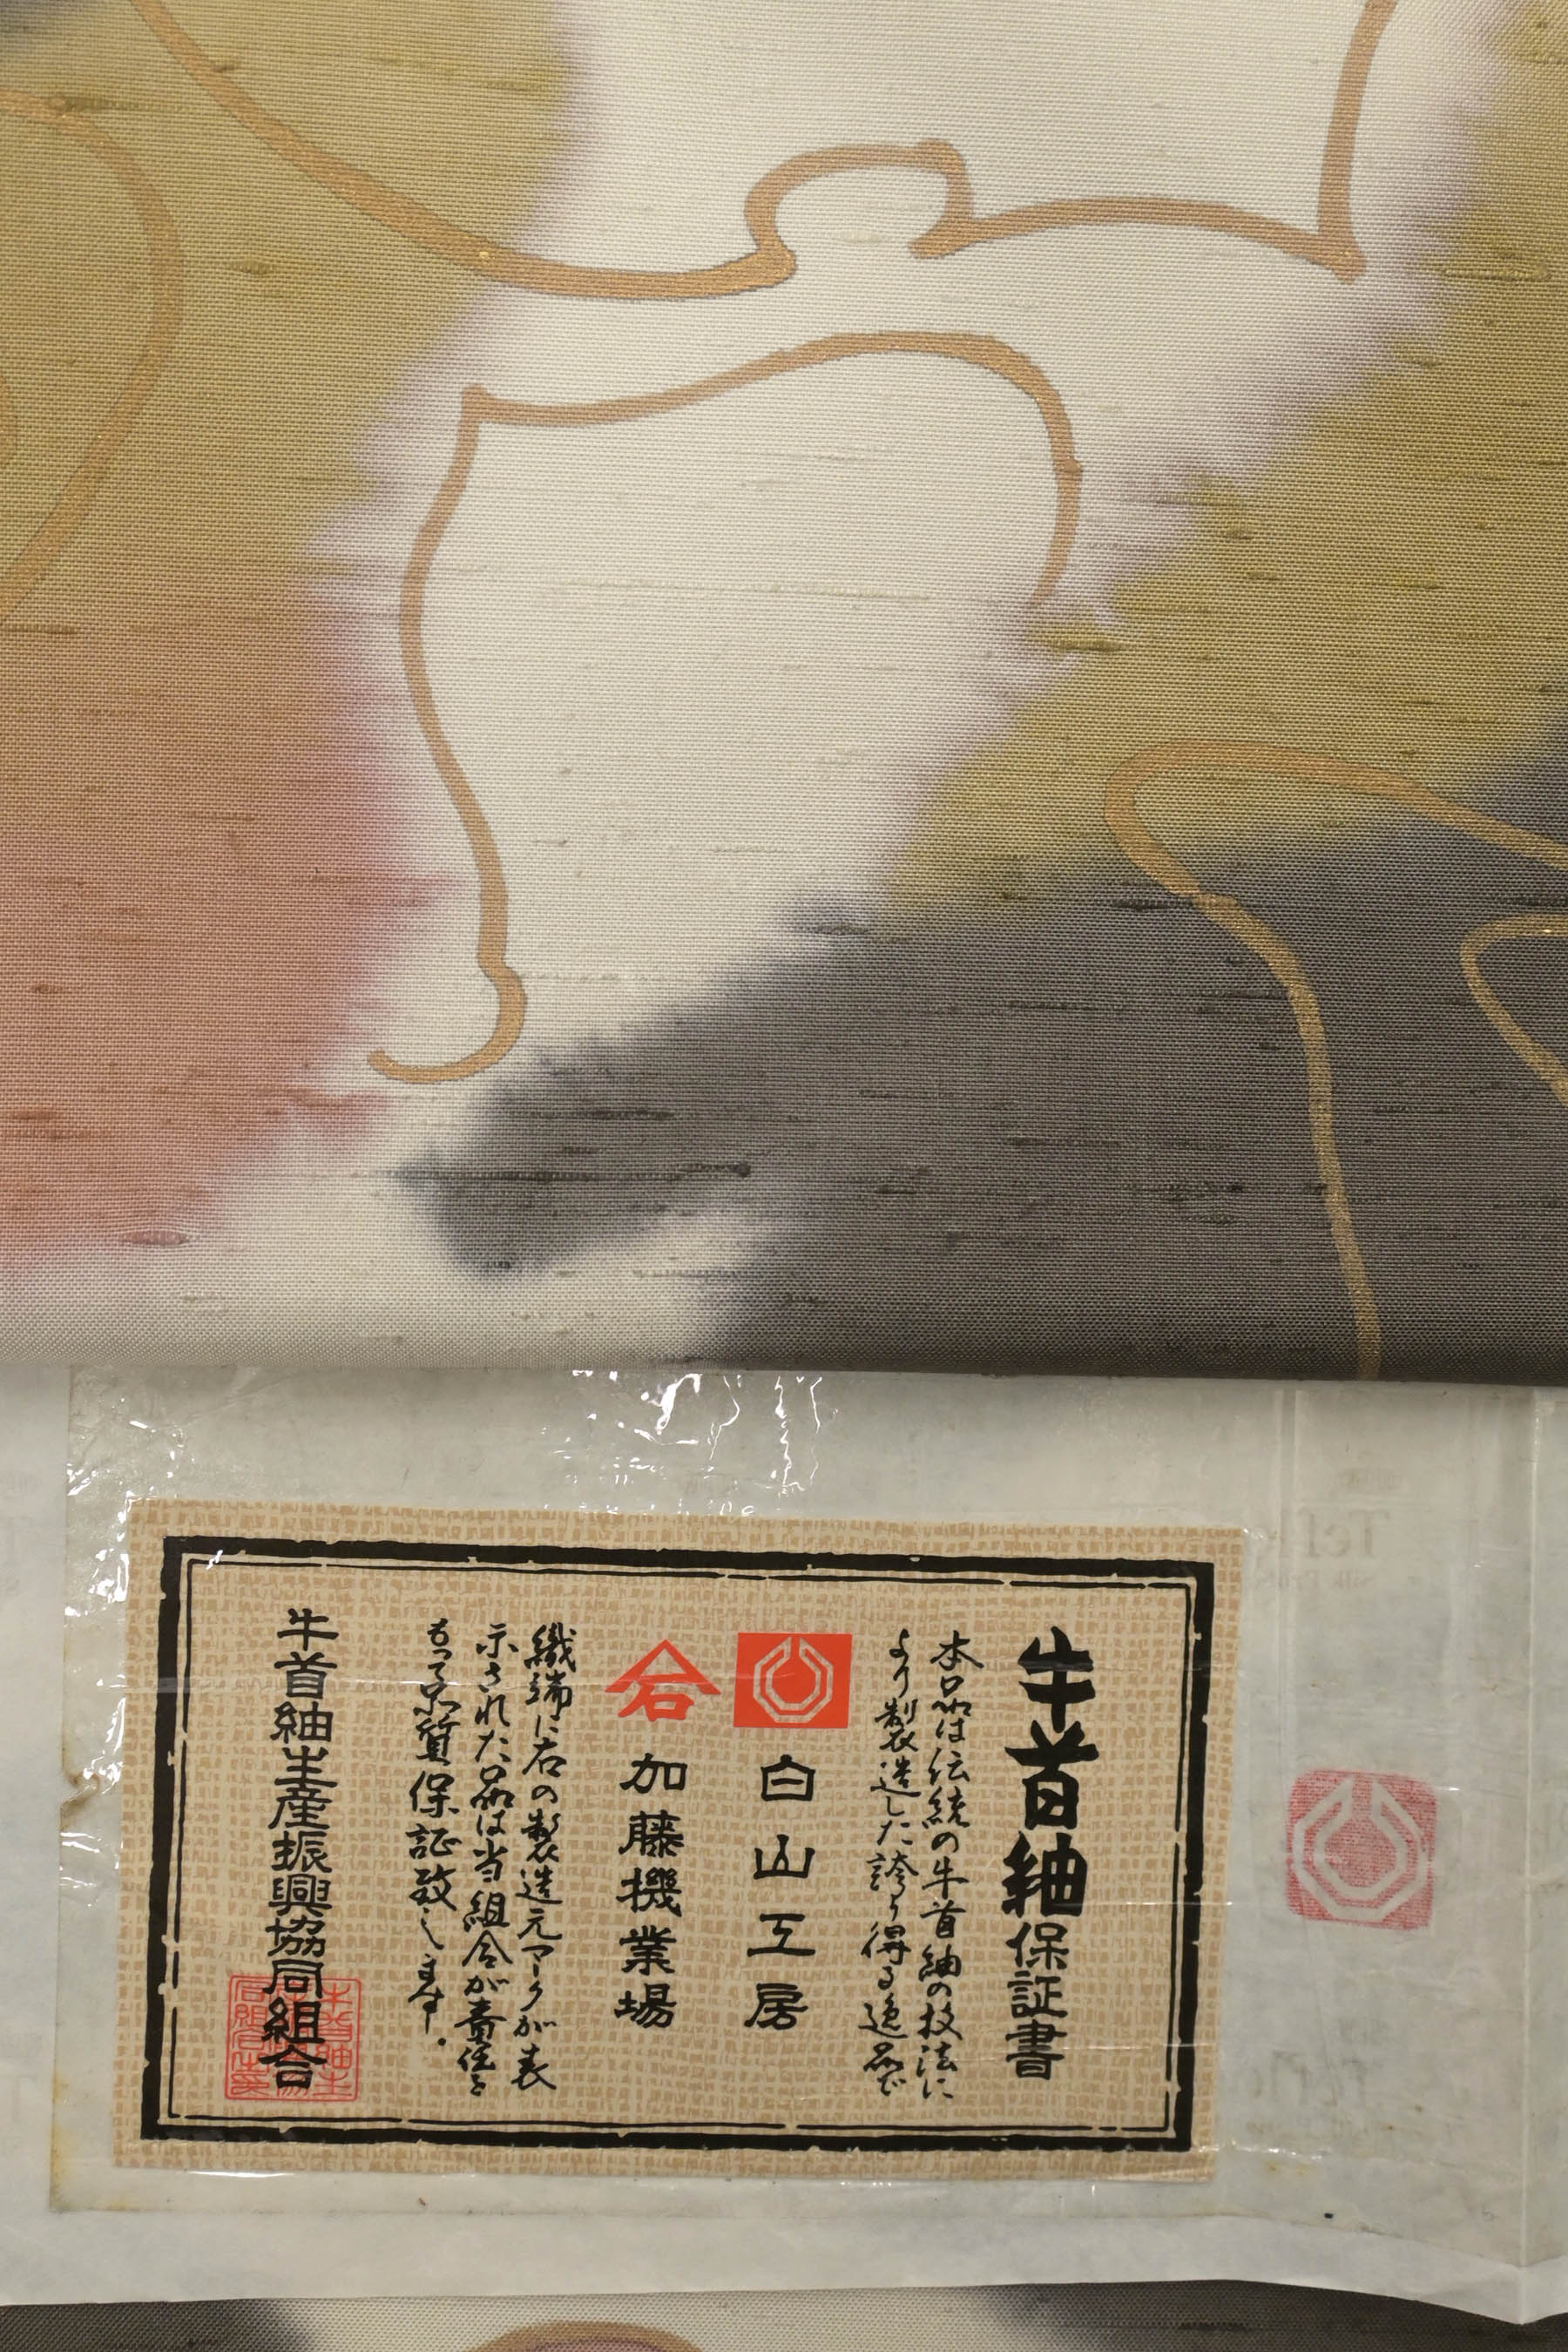 牛首紬保証書
本品は伝統の牛首紬の技法に
より製造した誇り得る逸品で
白山工房
加藤機業場
織端に右の製造元マークが表
示された品は当組合が責任を
もって品質保証致します。
牛首紬生産振興協同組合
Tel